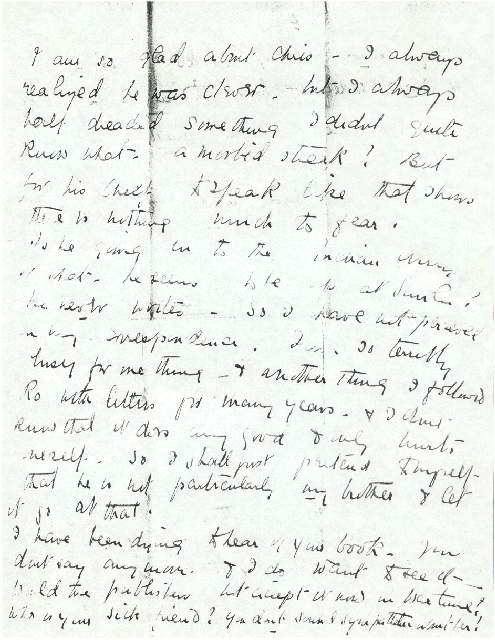 I am so glad about Chris - I always
realized he was clever - but I always
half dreaded something I didnt quite
know what - a morbid streak? But
for his to speak like that shows
there is nothing much to fear.
Is he going in to the Indian
or what - he seems to be up at
he never writes - So I have not
in my correspondence. I am so terribly
busy for one thing - & another thing I followed
Ro with letters for many years - & I dont
know that it does any good & only hurts
myself. So I shall just pretend to myself
that he is not particularly my brother & let
it go at that.
I have been dying to hear of your book - You
dont say any more. & I do want to see it -
would the publishers not accept it now in
Who is your sick friend? You dont sound sympathetic about her!